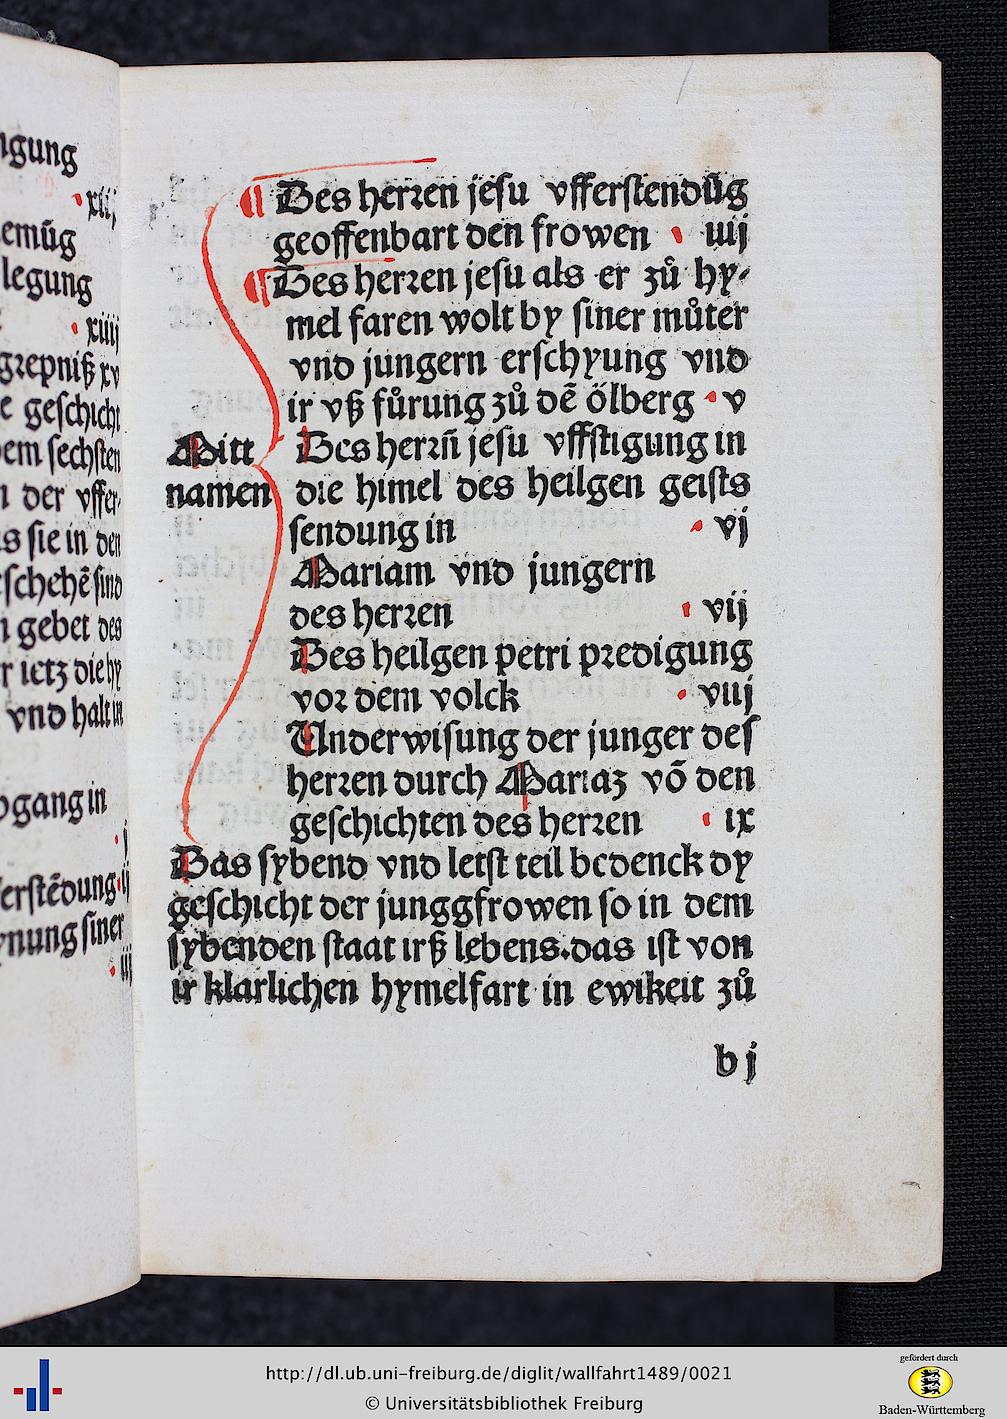 ngung
· xiij
emůg
legung
· xiiij
grepniß xv
e geschicht
em sechsten
n der vffer-
s sie in den
schehẽ sind
n gebet des
r ietz die hy
vnd halt in
bgang in
· j
erstẽdung · ij
ynung siner
· iij
¶ Des herren jesu vfferstendůg
geoffenbart den frowen · iiij
¶ Des herren jesu als er zů hy-
mel faren wolt by siner můter
vnd jungern erschyung vnd
ir vß fůrung zů dẽ ölberg · v
Mitt
namen
Des herrñ jesu vffstigung in
die himel des heilgen geists
sendung in · vj
Mariam vnd jungern
des herren · vij
Des heilgen petri predigung
vor dem volck · viij
Underwisung der junger des
herren durch Mariaz võ den
geschichten des herren · ix
Das sybend vnd letst teil bedenck dy
geschicht der junggfrowen so in dem
sybenden staat irß lebens.das ist von
ir klarlichen hymelfart in ewikeit zů
b j
http://dl.ub.uni-freiburg.de/diglit/wallfahrt1489/0021
© Universitätsbibliothek Freiburg
gefördert durch
Baden-Württemberg